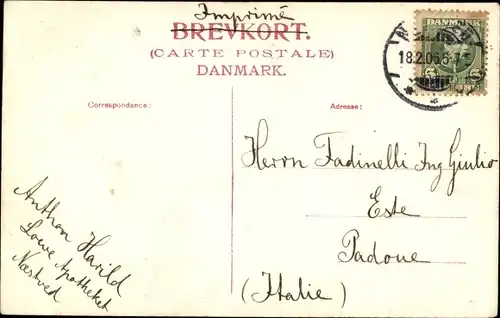 Imprimé
BREVKORT.
(CARTE POSTALE)
DANMARK.
DANMARK
18.2.06.5-7
5
Correspondance:
Adresse:
Herrn Fadinelli Ing Giulio
Este
Padoue
(Italie)
Anthon Harild
Loewe Apotheket
Næstved